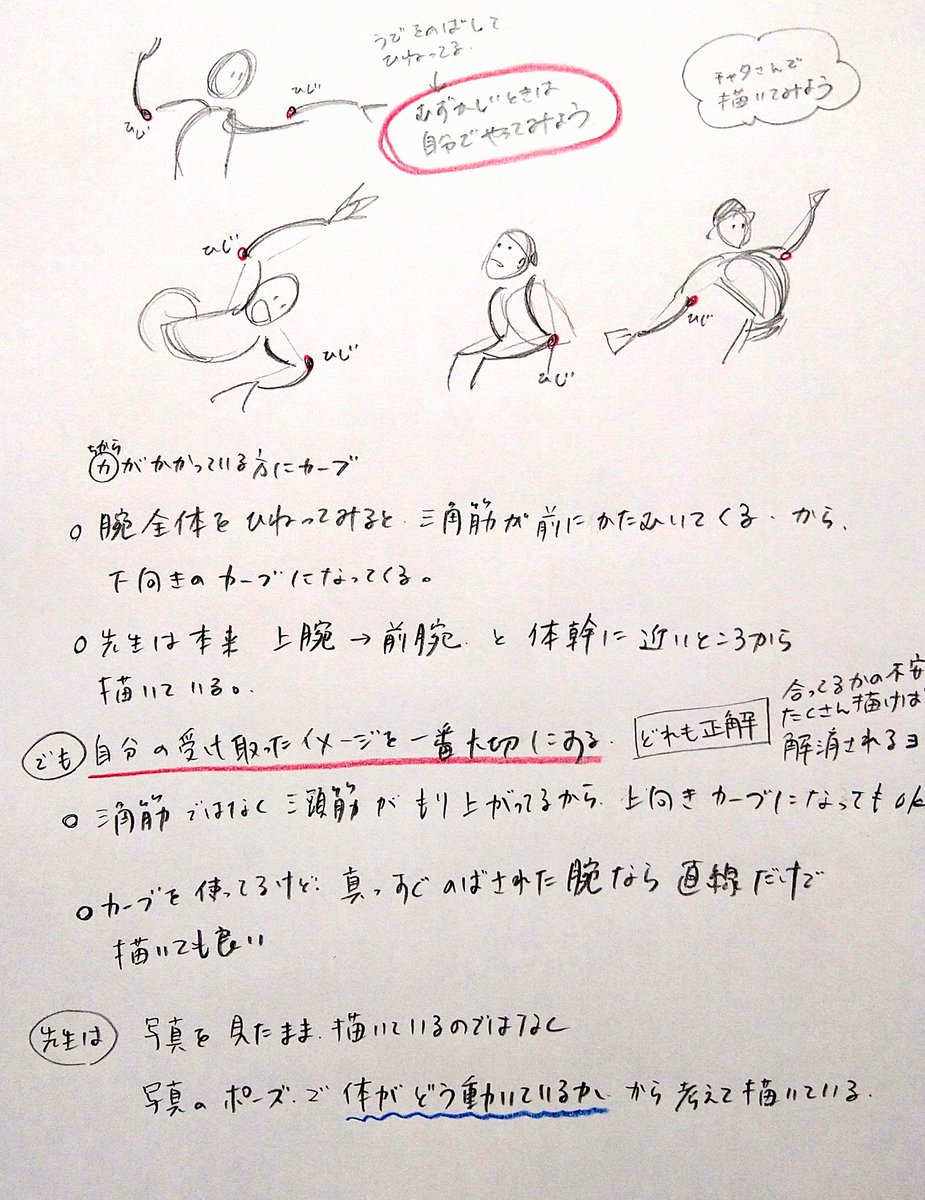 うでをのばして
ひねってる
むずかしいときは
自分でやってみよう
チャタさんで
描いてみよう
ひじ
ひじ
ひじ
ひじ
ひじ
ひじ
ちから
力がかかっている方にカーブ
○ 腕全体をひねってみると、三角筋が前にかたむいてくる、から、
下向きのカーブになってくる。
○ 先生は本来 上腕→前腕 と 体幹に近いところから
描いている。
でも 自分の受け取ったイメージを一番大切にする。
どれも正解
合ってるかの不安
たくさん描けば
解消されるヨ
○ 三角筋ではなく三頭筋がもり上がってるから、上向きカーブになってもOK
○ カーブを使ってるけど、真っすぐのばされた腕なら直線だけで
描いても良い
先生は 写真を見たまま描いているのではなく
写真のポーズで体がどう動いているか、から考えて描いている。